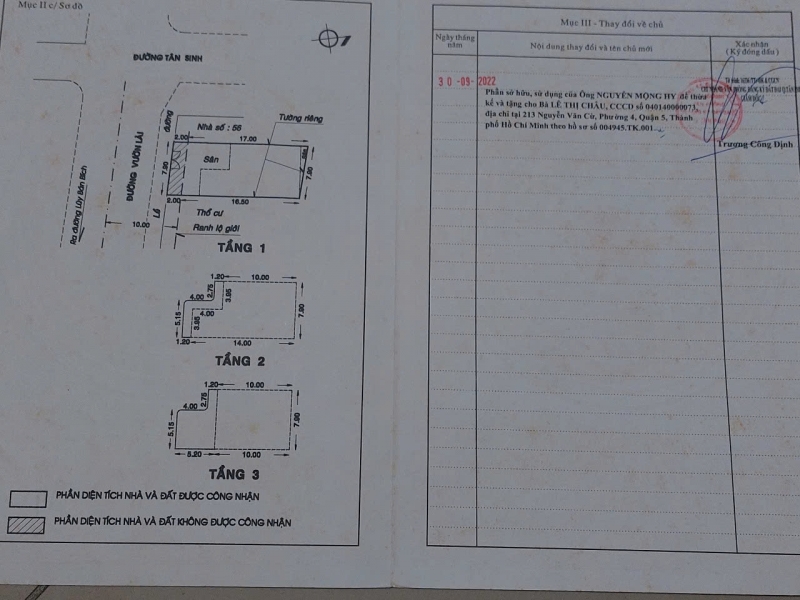 Mục II c/ Sơ đồ
ĐƯỜNG TÂN SINH
ĐƯỜNG VƯỜN LÀI
Ra đường Lũy Bán Bích
10.00
Lề
đường
Nhà số : 56
Tường riêng
2.00
17.00
7.90
Sân
Sân
7.90
2.00
16.50
Thổ cư
Ranh lộ giới
TẦNG 1
1.20
10.00
2.75
4.00
3.95
5.15
3.95
4.00
7.90
1.20
14.00
TẦNG 2
1.20
10.00
2.75
4.00
5.15
7.90
5.20
10.00
TẦNG 3
PHẦN DIỆN TÍCH NHÀ VÀ ĐẤT ĐƯỢC CÔNG NHẬN
PHẦN DIỆN TÍCH NHÀ VÀ ĐẤT KHÔNG ĐƯỢC CÔNG NHẬN
Mục III - Thay đổi về chủ
Ngày tháng năm
Nội dung thay đổi và tên chủ mới
Xác nhận
(Ký đóng dấu)
30 -09- 2022
Phần sở hữu, sử dụng của Ông NGUYÊN MỘNG HY để thừa
kế và tặng cho Bà LÊ THỊ CHÂU, CCCD số 040140000073,
địa chỉ tại 213 Nguyễn Văn Cừ, Phường 4, Quận 5, Thành
phố Hồ Chí Minh theo hồ sơ số 004945.TK.001
Trương Công Định